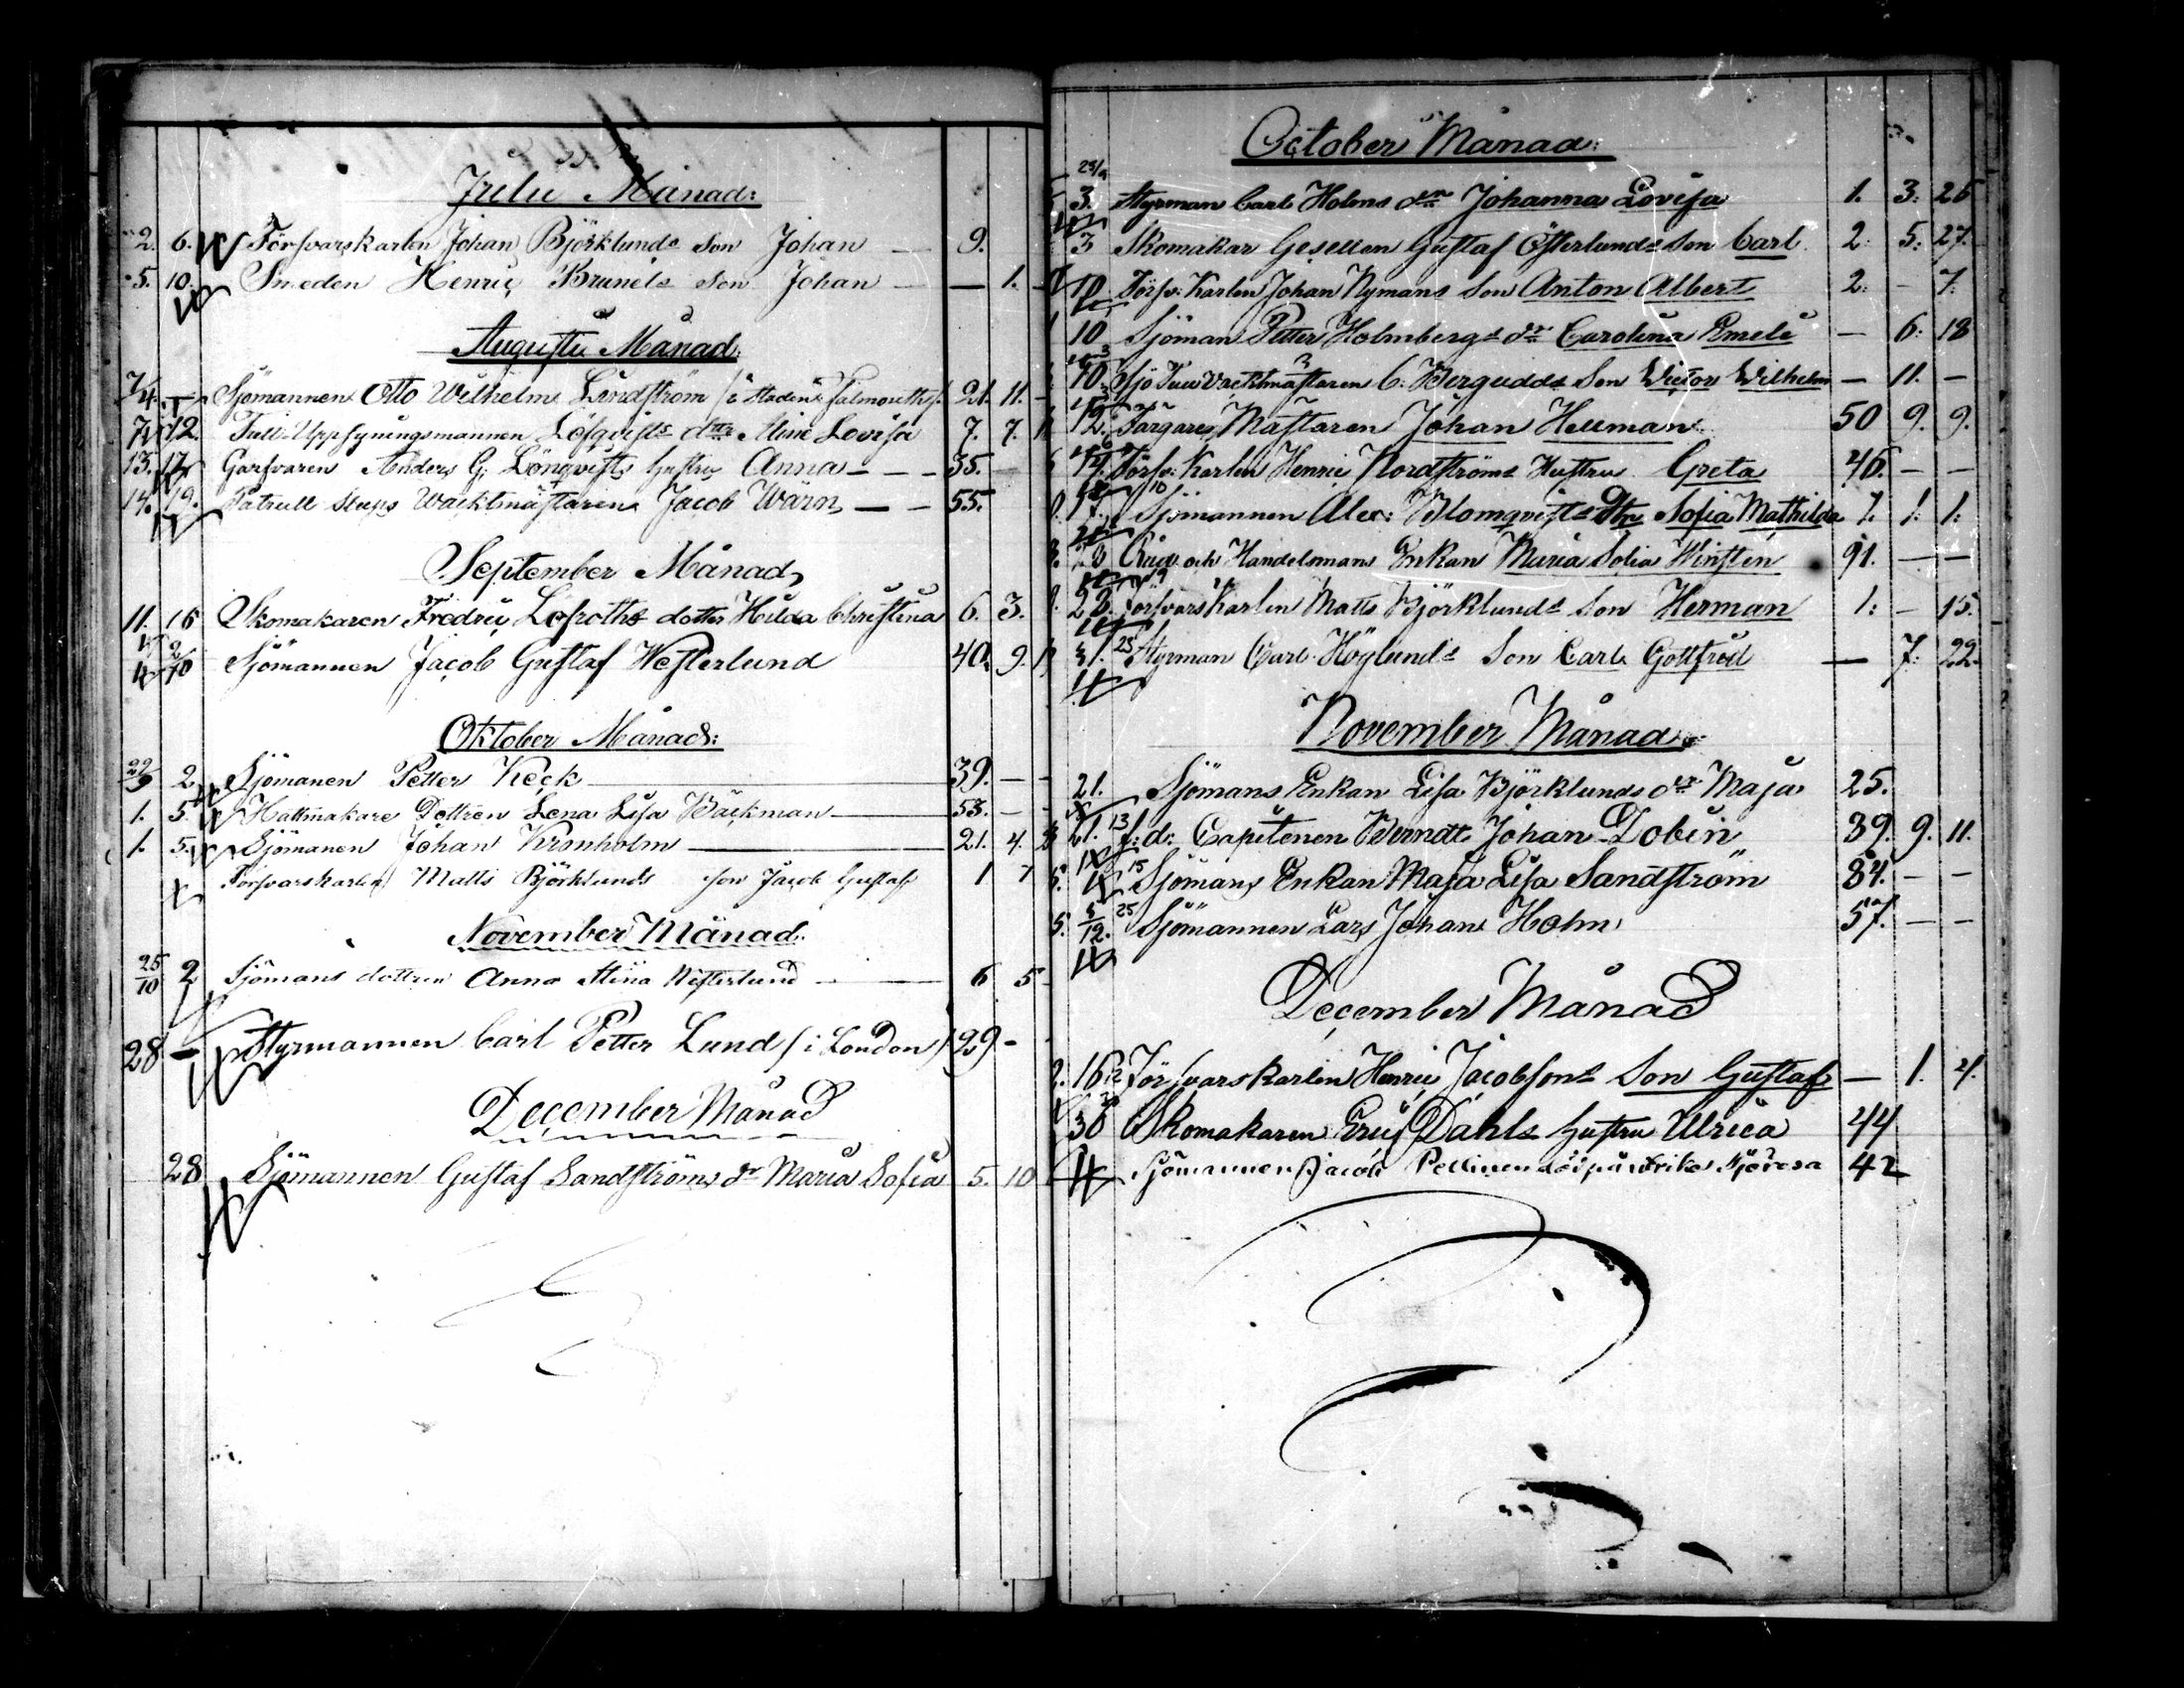 Julii Månad:
2. 6. Försvarskarlen Johan Björklunds Son Johan — 9.
5. 10. Smeden Henric Brunels Son Johan — — 1.
Augusti Månad.
7/4. — Sjömannen Otto Wilhelm Lindström (i staden Falmouth). 21. 11.
7. 12. Tull-Uppsyningsmannen Löfqvists dttr Mina Lovisa 7. 7.
13. 17. Garfvaren Anders G. Lönqvists hustru Anna — — 35. —
14. 19. Patrull Slups Wacktmästaren Jacob Wärn — — 55.
September Månad
11. 16 Skomakaren Fredric Lofroths dotter Hilda Christina 6. 3.
2/10 Sjömannen Jacob Gustaf Westerlund 40. 9.
Oktober Månad:
29/9 2. Sjömanen Petter Keck — 39. — —
1. 5. Hattmakare Dottren Lena Lisa Bäckman — 53. — —
1. 5. Sjömanen Johan Kronholm — 21. 4.
Forsvarskarlen Matts Björklunds son Jacob Gustaf 1 7
November Månad.
25/10 2 Sjömans dottren Anna Stina Westerlund — 6 5
28 — Styrmannen Carl Petter Lund (i London) 29 -
December Månad
28 Sjömannen Gustaf Sandströms dr Maria Sofia 5. 10
October Månad:
3. Styrman Carl Holms dtr Johanna Lovisa 1. 3: 26
3 Skomakar Gesellen Gustaf Österlunds Son Carl 2: 5: 27.
10. Försv: Karlen Johan Nymans Son Anton Albert 2: — 7.
10 Sjöman Petter Holmbergs dr Carolina Emeli — 6: 18
10. Sjö Tull Vacktmästaren C: Bergudds Son Victor Wilhelm — 11. —
12. Färgare Mästaren Johan Hellman 50 9. 9.
14. Försv: Karlen Henric Nordströms Hustru Greta 46. — —
17. 10 Sjömannen Alex: Blomqvists Dtr Sofia Mathilda 1. 1:
och Handelsmans Enkan Maria Sofia Winsten 91. — —
23. Försvars Karlen Matts Björklunds Son Herman 1: — 15.
31. 25 Styrman Carl Höglunds Son Carl Gottfrid — 7: 22
November Månad.
21. Sjömans Enkan Lisa Björklunds dtr Maja 25.
21. 13 f: d: Capitenen Berndt Johan Dobin 39. 9. 11.
15 Sjömans Enkan Maja Lisa Sandström 84. — —
5/12. 25 Sjömannen Lars Johan Holm 57. — —
December Månad
16 Försvarskarlen Henric Jacobsons Son Gustaf — 1. 4.
30 Skomakaren Eric Dahls hustru Ulrica 44
Sjömannen Jacob Pellinen död på utrikes Sjöresa 42